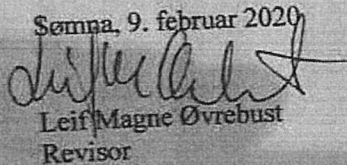 Sømna, 9. februar 2020
Leif Magne Øvrebust
Revisor